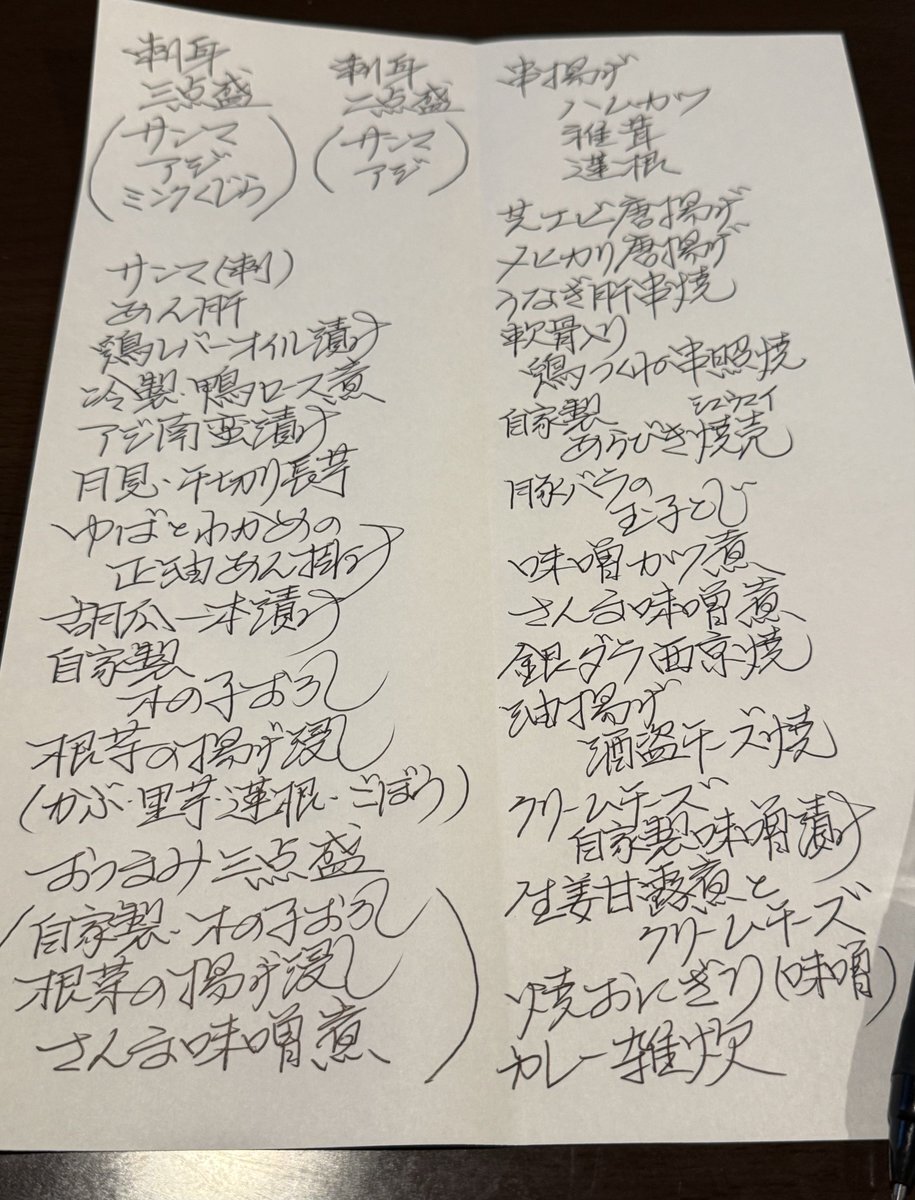 刺身
三点盛
(サンマ
アジ
ミンクくじら)
刺身
二点盛
(サンマ
アジ)
サンマ(刺)
あん肝
鶏レバーオイル漬け
冷製・鴨ロース煮
アジ南蛮漬け
月見・千切り長芋
ゆばとわかめの
正油あん掛け
胡瓜一本漬け
自家製
木の子おろし
根菜の揚げ浸し
(かぶ・里芋・蓮根・ごぼう)
おつまみ三点盛
(自家製・木の子おろし
根菜の揚げ浸し
さんま味噌煮)
串揚げ
ハムカツ
椎茸
蓮根
芝エビ唐揚げ
メヒカリ唐揚げ
うなぎ肝串焼
軟骨入り
鶏つくねの串照焼
自家製
シュウマイ
あらびき焼売
豚バラの
玉子とじ
味噌カツ煮
さんま味噌煮
銀ダラ西京焼
油揚げ
酒盗チーズ焼
クリームチーズ
自家製味噌漬け
生姜甘露煮と
クリームチーズ
焼おにぎり(味噌)
カレー雑炊